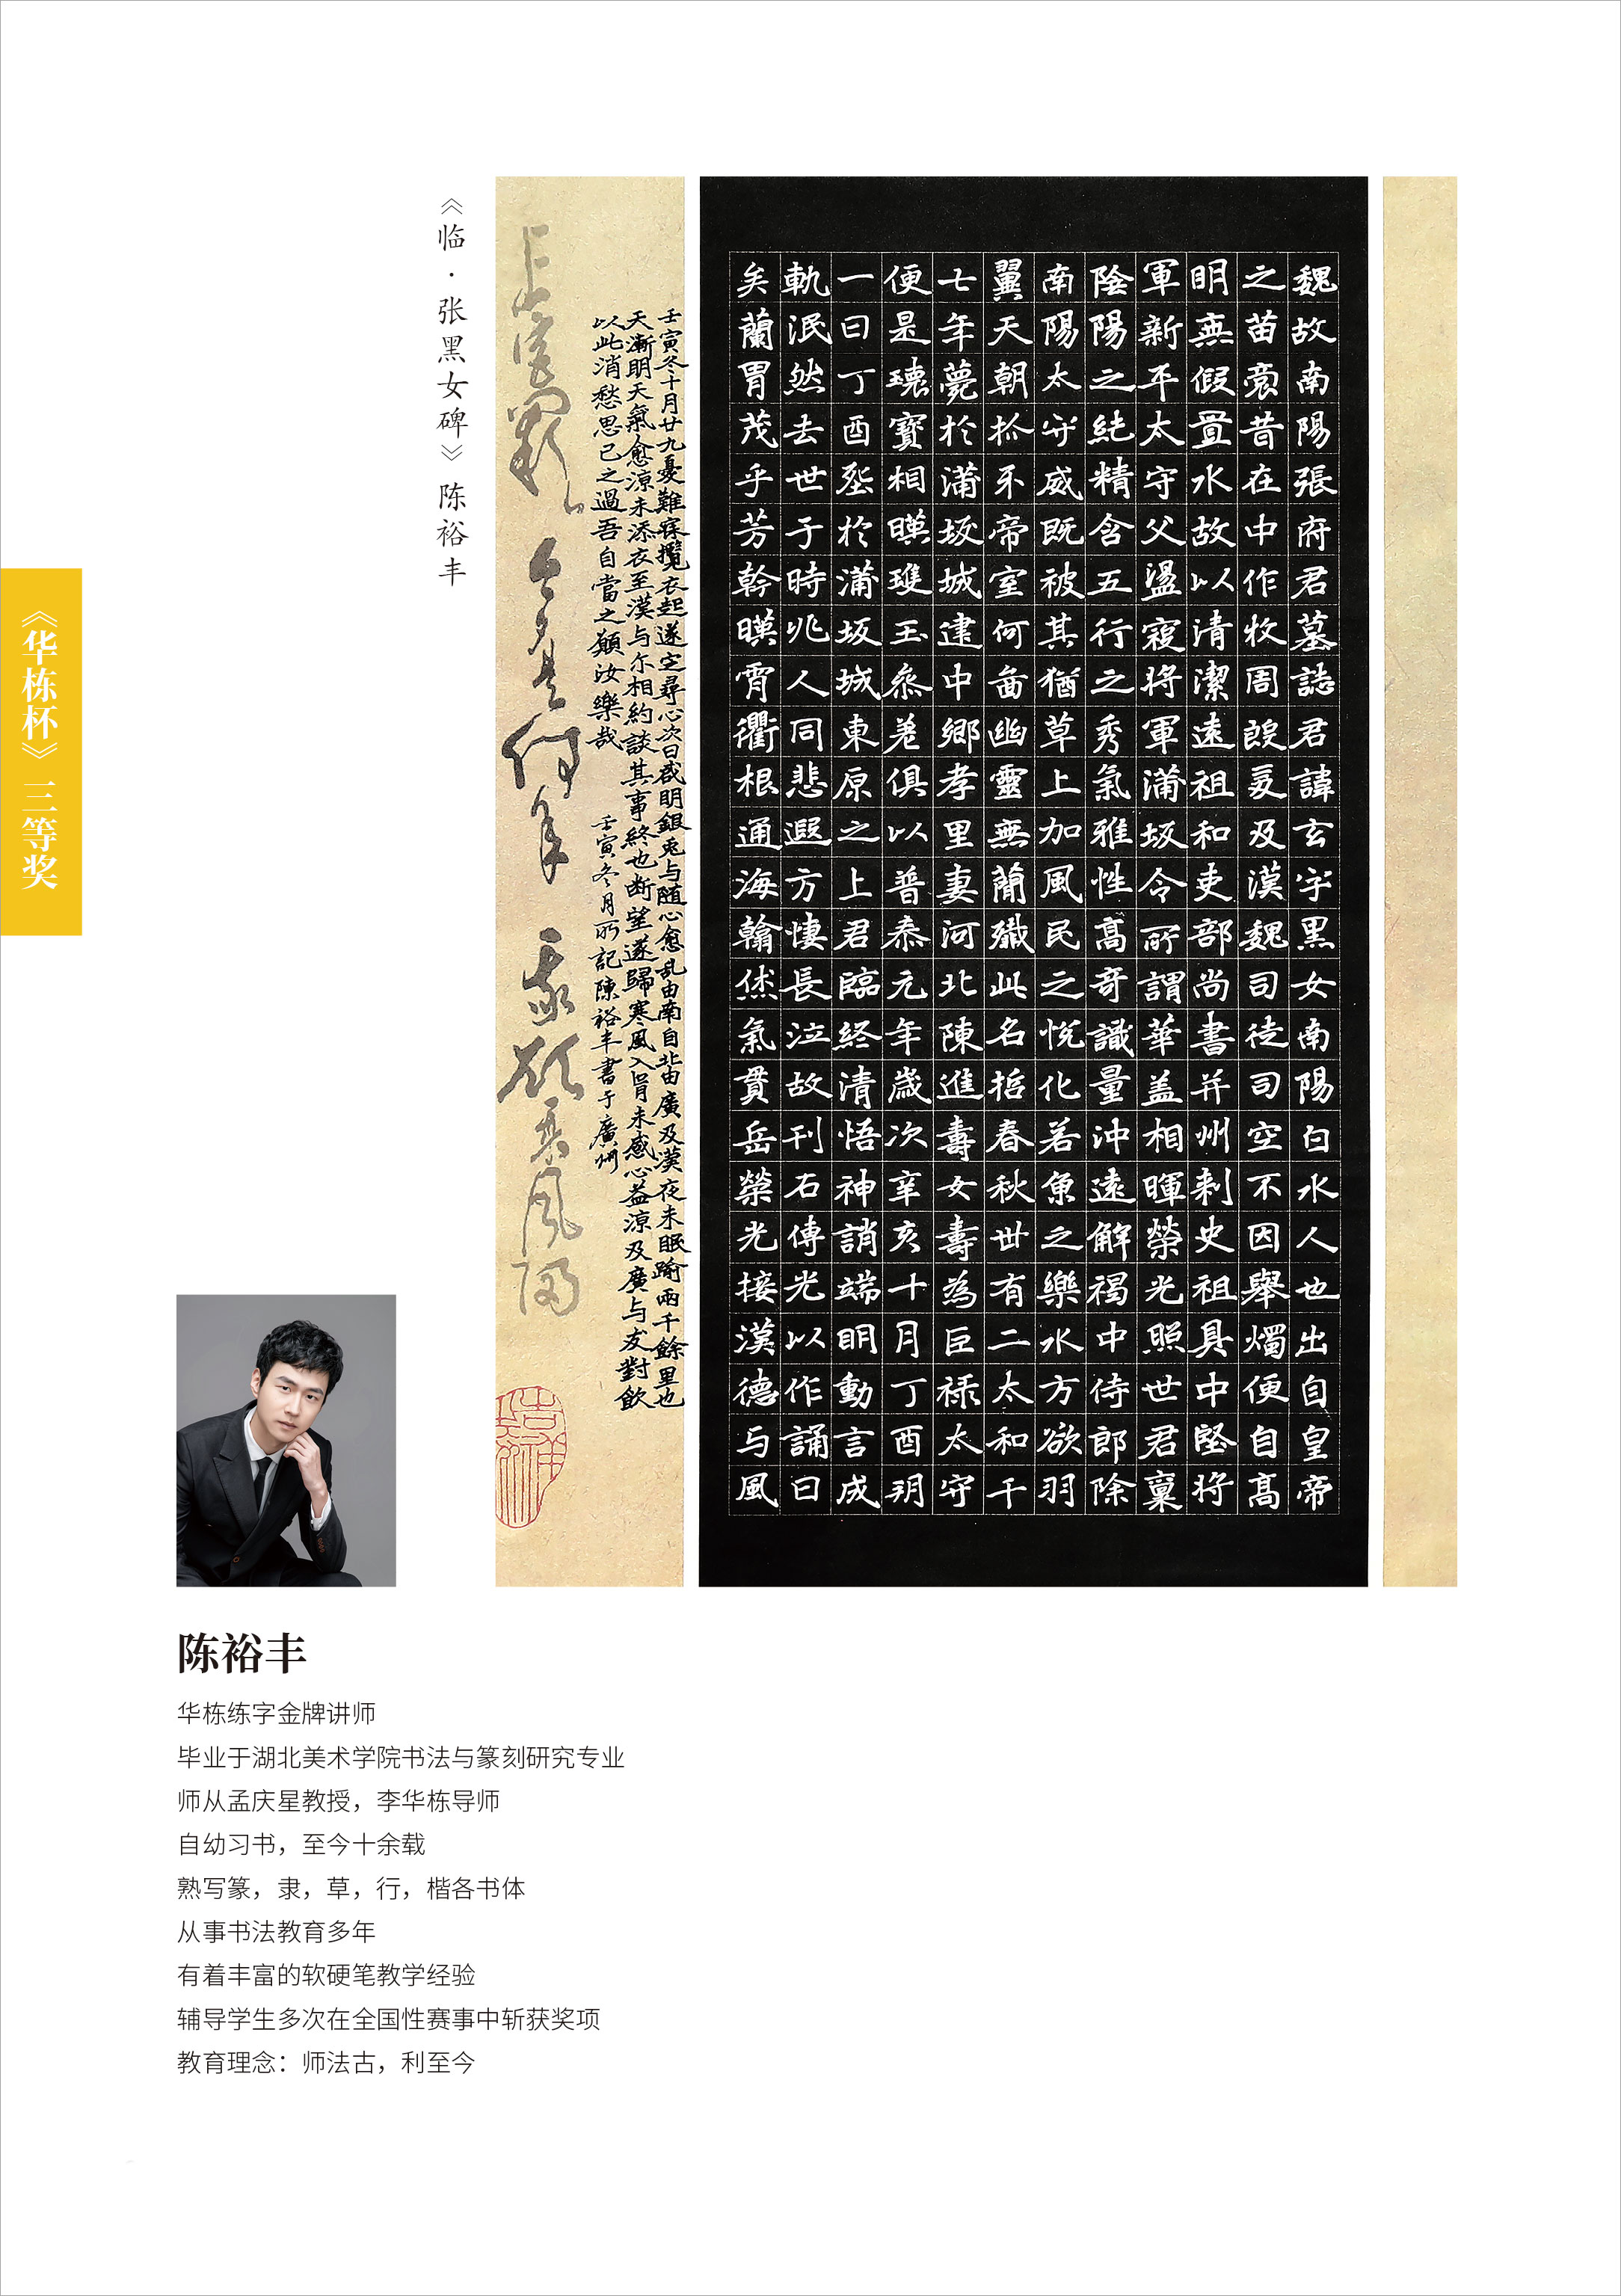 《华栋杯》三等奖
《临·张黑女碑》陈裕丰
魏故南陽張府君墓誌君諱玄字黑女南陽白水人也出自皇帝
之苗裔昔在中作牧周殷爰及漢魏司徒司空不因舉燭便自高
明無假置水故以清潔遠祖和吏部尚書并州刺史祖具中堅將
軍新平太守父盪寇將軍蒲坂令所謂華蓋相暉榮光照世君稟
陰陽之純精含五行之秀氣雅性高奇識量沖遠解褐中侍郎除
南陽太守威既被其猶草上加風民之悅化若魚之樂水方欲羽
翼天朝抓牙帝室何啚幽靈無蘭殲此名哲春秋卅有二太和十
七年薨於蒲坂城建中鄉孝里妻河北陳進壽女壽為巨祿太守
便是瓌寶相暎瓊玉參差俱以普泰元年歲次辛亥十月丁酉朔
一日丁酉葬於蒲坂城東原之上君臨終清悟神誚端明動言成
軌泯然去世于時兆人同悲遐方悽長泣故刊石傳光以作誦曰
矣蘭胄茂乎芳幹暎霄衢根通海翰烋氣貫岳榮光接漢德与風
壬寅冬十月廿九憂難寐攬衣起遂空尋心次日感明銀兎与随心愈乱由南自北由廣及漢夜未眠踰兩千餘里也
天漸明天氣愈涼未添衣至漢与尔相約談其事終也断望遂歸寒風入骨未感心益涼及廣与友對飲
以此消愁思己之過吾自當之願汝樂哉 壬寅冬月丙記陳裕丰書于廣州
上宮闕今夕是何年我欲乘風歸
陈裕丰
华栋练字金牌讲师
毕业于湖北美术学院书法与篆刻研究专业
师从孟庆星教授，李华栋导师
自幼习书，至今十余载
熟写篆，隶，草，行，楷各书体
从事书法教育多年
有着丰富的软硬笔教学经验
辅导学生多次在全国性赛事中斩获奖项
教育理念：师法古，利至今